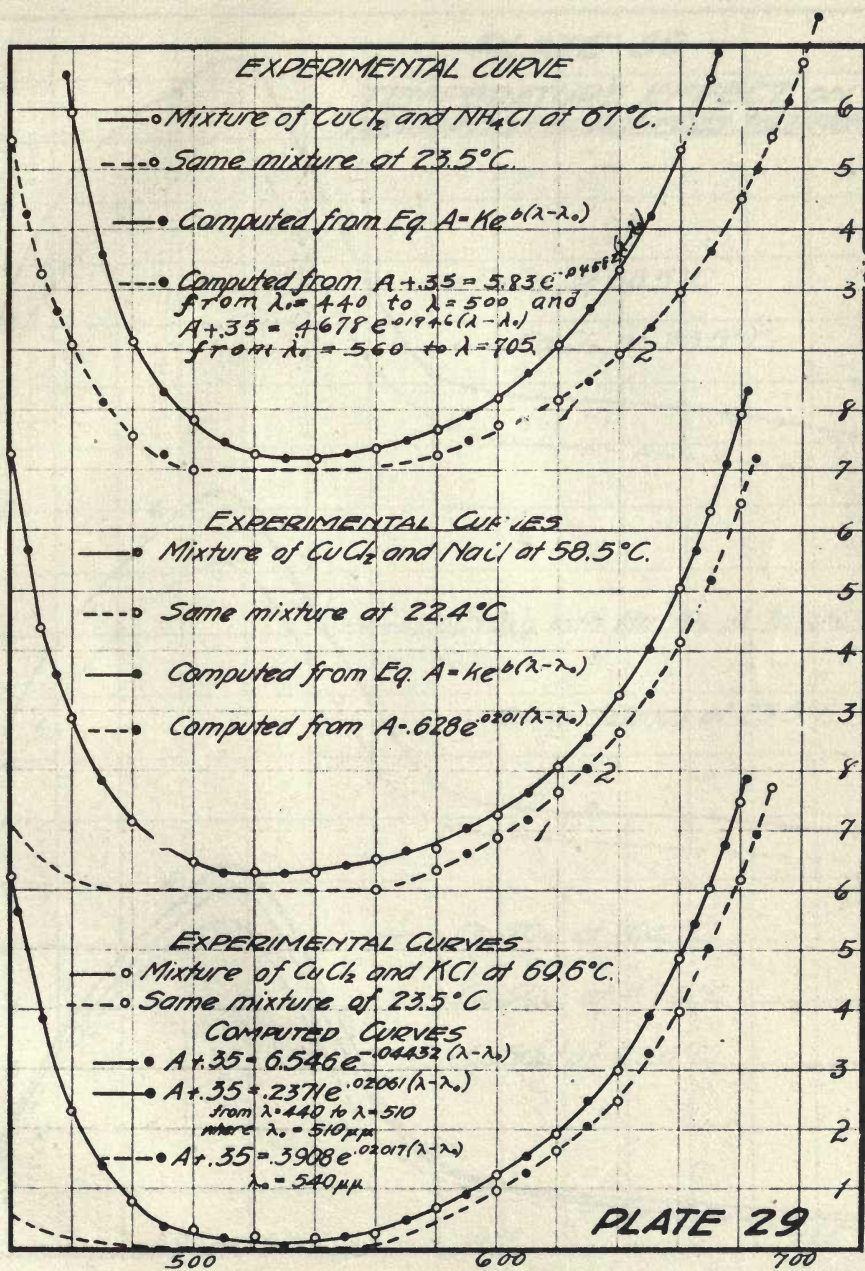 EXPERIMENTAL CURVE
Mixture of CuCl₂ and NH₄Cl at 67°C.
Same mixture at 23.5°C.
Computed from Eq. A=Ke^b(λ-λ₀)
Computed from A+.35 = 5.83e^-.04682(λ-λ₀)
from λ₀=440 to λ=500 and
A+.35 = .4678e^.01946(λ-λ₀)
from λ₀ = 560 to λ=705.
6
5
4
3
2
1
8
7
EXPERIMENTAL CURVES
Mixture of CuCl₂ and NaCl at 58.5°C.
Same mixture at 22.4°C
Computed from Eq. A=Ke^b(λ-λ₀)
Computed from A=.628e^.0201(λ-λ₀)
6
5
4
3
2
1
8
7
6
EXPERIMENTAL CURVES
Mixture of CuCl₂ and KCl at 69.6°C.
Same mixture of 23.5°C
COMPUTED CURVES
A+.35=6.546e^-.04432(λ-λ₀)
A+.35=.2371e^.02061(λ-λ₀)
from λ=440 to λ=510
where λ₀ = 510μμ
A+.35=.3908e^.02017(λ-λ₀)
λ₀ = 540μμ
5
4
3
2
1
PLATE 29
500 600 700